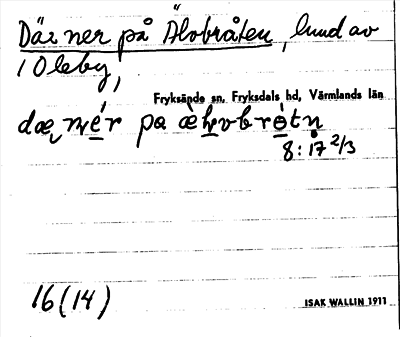 Där ner på Älvbråten, lund av
1 Oleby,
Fryksände sn, Fryksdals hd, Värmlands län
8:17 2/3
16(14)
ISAK WALLIN 1911